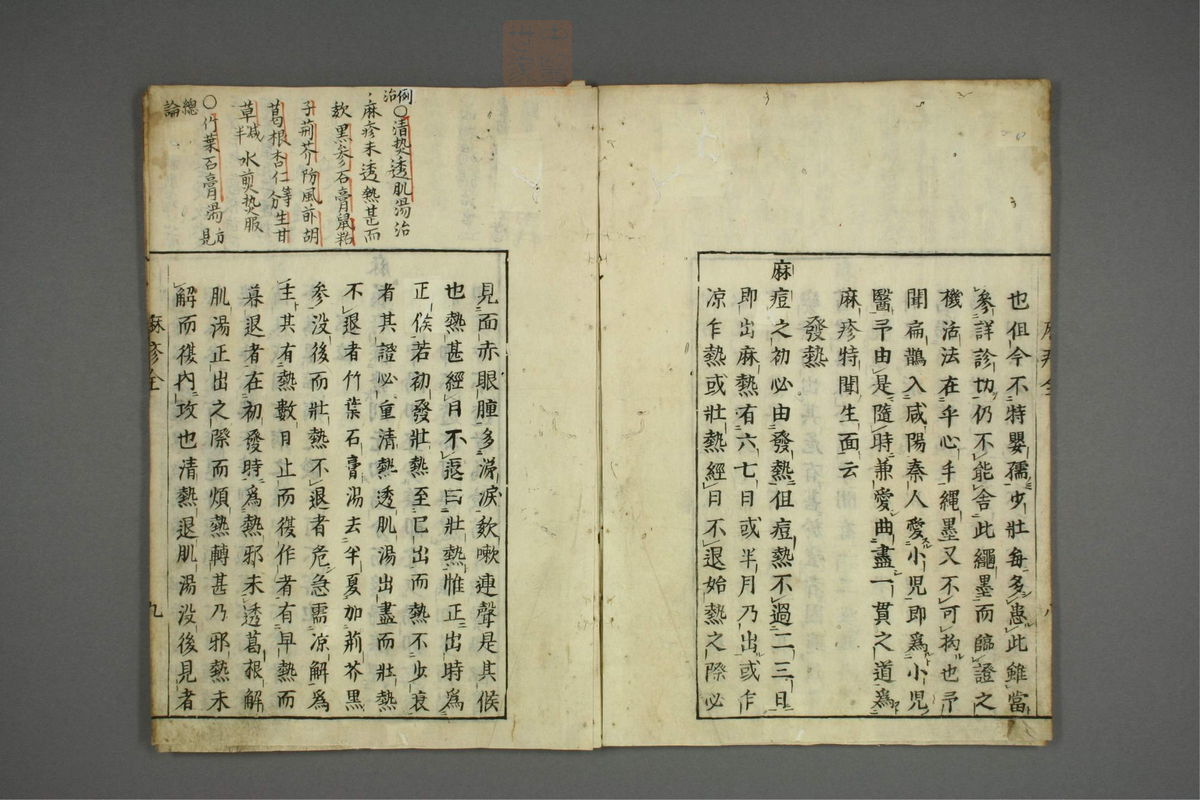 也但今不特嬰孺少壯每多患此雖當
參詳診切仍不能舍此繩墨而臨證之
機活法在乎心手繩墨又不可拘也予
聞扁鵲入咸陽秦人愛小兒即爲小兒
醫予由是隨時兼愛曲盡一貫之道爲
麻疹特聞生面云
發熱
麻痘之初必由發熱但痘熱不過二三日
即出麻熱有六七日或半月乃出或乍
凉乍熱或壯熱經日不退始熱之際必
八
例治
○清热透肌湯治
麻疹未透熱甚而
欬黒參石膏鼠粘
子荊芥防風前胡
葛根杏仁等分生甘
草减半水煎热服
○竹葉石膏湯方見
總論
見面赤眼腫多涕淚欬嗽連聲是其候
也熱甚經日不退曰壯熱惟正出時爲
正候若初發壯熱至已出而熱不少衰
者其證必重清熱透肌湯出盡而壯熱
不退者竹葉石膏湯去半夏加荊芥黒
參没後而壯熱不退者危急需凉解爲
主其有熱數日止而復作者有早熱而
暮退者在初發時爲熱邪未透葛根解
肌湯正出之際而煩熱轉甚乃邪熱未
解而復內攻也清熱退肌湯没後見者
麻疹全
九